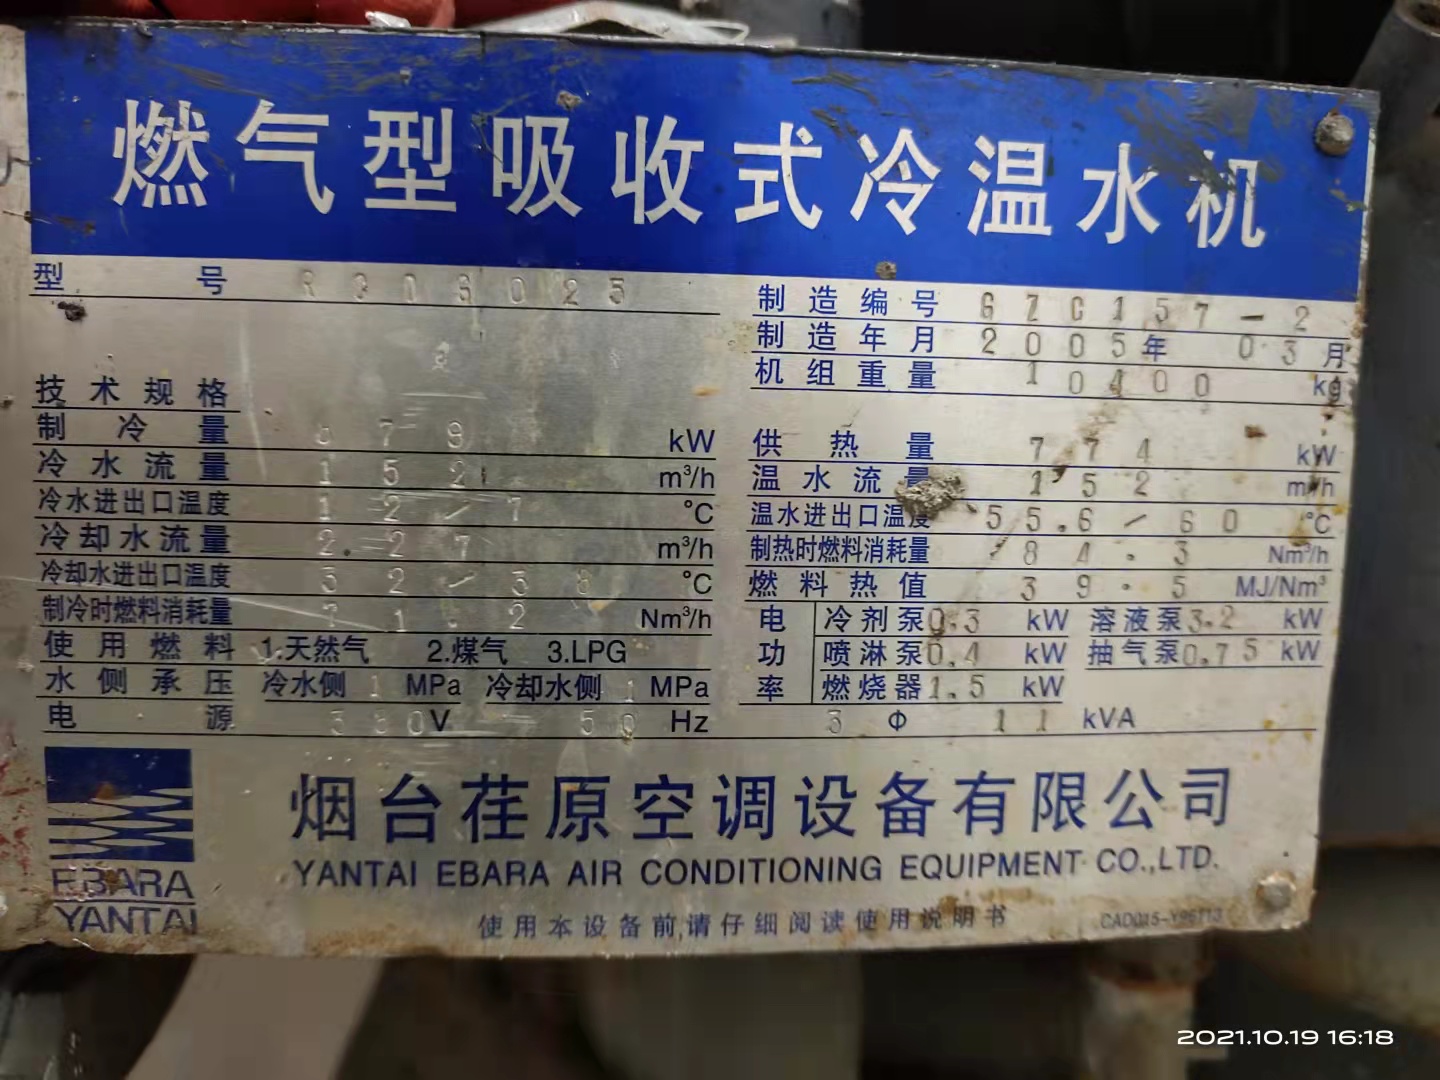 燃气型吸收式冷温水机
型号
制造编号 GZC157-2
制造年月 2005年 03月
机组重量 10400 kg
技术规格
制冷量 kW 供热量 774 kW
冷水流量 152 m³/h 温水流量 152 m³/h
冷水进出口温度 12/7 ℃ 温水进出口温度 55.6/60 ℃
冷却水流量 227 m³/h 制热时燃料消耗量 84.3 Nm³/h
冷却水进出口温度 ℃ 燃料热值 39.5 MJ/Nm³
制冷时燃料消耗量 71.2 Nm³/h 电功率 冷剂泵 0.3 kW 溶液泵 3.2 kW
使用燃料 1.天然气 2.煤气 3.LPG 喷淋泵 0.4 kW 抽气泵 0.75 kW
水侧承压 冷水侧 1 MPa 冷却水侧 1 MPa 燃烧器 1.5 kW
电源 380V 50 Hz 3 Φ 11 kVA
烟台荏原空调设备有限公司
YANTAI EBARA AIR CONDITIONING EQUIPMENT CO.,LTD.
EBARA
YANTAI
使用本设备前,请仔细阅读使用说明书
2021.10.19 16:18